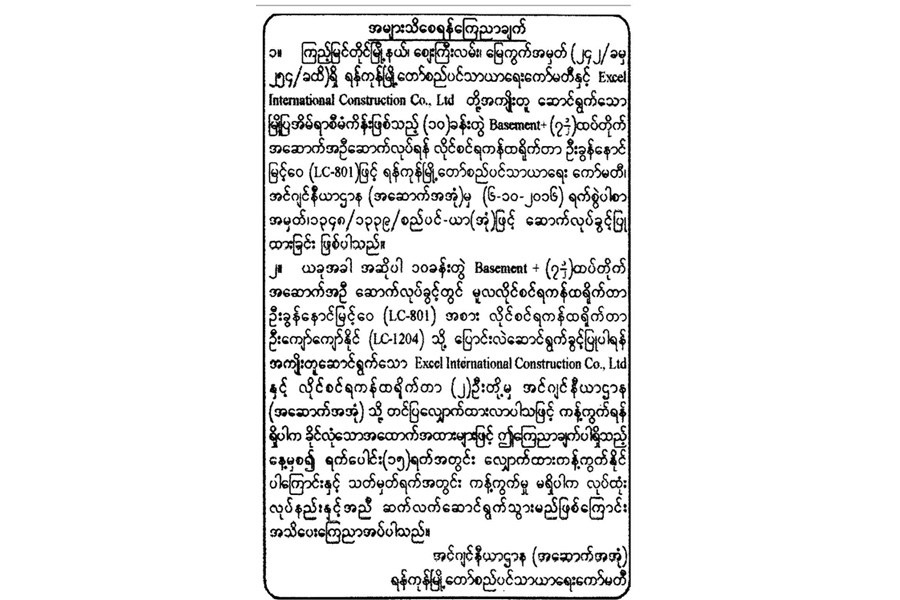 အများသိစေရန်ကြေညာချက်
၁။ ကြည့်မြင်တိုင်မြို့နယ်၊ ဈေးကြီးလမ်း၊ မြေကွက်အမှတ် (၂၄၂/ခမှ
၂၅၄/ခထိ)ရှိ ရန်ကုန်မြို့တော်စည်ပင်သာယာရေးကော်မတီနှင့် Excel
International Construction Co., Ltd တို့အကျိုးတူ ဆောင်ရွက်သော
မြို့ပြအိမ်ရာစီမံကိန်းဖြစ်သည့် (၁၀)ခန်းတွဲ Basement+ (၇ ၁/၂)ထပ်တိုက်
အဆောက်အဦဆောက်လုပ်ရန် လိုင်စင်ရကန်ထရိုက်တာ ဦးခွန်နောင်
မြင့်ဝေ (LC-801)ဖြင့် ရန်ကုန်မြို့တော်စည်ပင်သာယာရေး ကော်မတီ၊
အင်ဂျင်နီယာဌာန (အဆောက်အအုံ)မှ (၆-၁၀-၂၀၁၆) ရက်စွဲပါစာ
အမှတ်၊၁၃၄၈/၁၃၃၉/စည်ပင်-ယာ(အုံ)ဖြင့် ဆောက်လုပ်ခွင့်ပြု
ထားခြင်း ဖြစ်ပါသည်။
၂။ ယခုအခါ အဆိုပါ ၁၀ခန်းတွဲ Basement + (၇ ၁/၂)ထပ်တိုက်
အဆောက်အဦ ဆောက်လုပ်ခွင့်တွင် မူလလိုင်စင်ရကန်ထရိုက်တာ
ဦးခွန်နောင်မြင့်ဝေ (LC-801) အစား လိုင်စင်ရကန်ထရိုက်တာ
ဦးကျော်ကျော်နိုင် (LC-1204) သို့ ပြောင်းလဲဆောင်ရွက်ခွင့်ပြုပါရန်
အကျိုးတူဆောင်ရွက်သော Excel International Construction Co., Ltd
နှင့် လိုင်စင်ရကန်ထရိုက်တာ (၂)ဦးတို့မှ အင်ဂျင်နီယာဌာန
(အဆောက်အအုံ) သို့ တင်ပြလျှောက်ထားလာပါသဖြင့် ကန့်ကွက်ရန်
ရှိပါက ခိုင်လုံသောအထောက်အထားများဖြင့် ဤကြေညာချက်ပါရှိသည့်
နေ့မှစ၍ ရက်ပေါင်း(၁၅)ရက်အတွင်း လျှောက်ထားကန့်ကွက်နိုင်
ပါကြောင်းနှင့် သတ်မှတ်ရက်အတွင်း ကန့်ကွက်မှု မရှိပါက လုပ်ထုံး
လုပ်နည်းနှင့်အညီ ဆက်လက်ဆောင်ရွက်သွားမည်ဖြစ်ကြောင်း
အသိပေးကြေညာအပ်ပါသည်။
အင်ဂျင်နီယာဌာန (အဆောက်အအုံ)
ရန်ကုန်မြို့တော်စည်ပင်သာယာရေးကော်မတီ